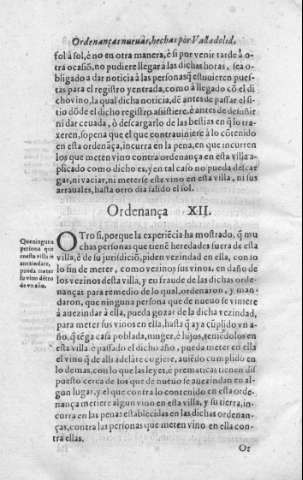 Ordenanças nueuas, hechas por Valladolid.
sol à sol, è no en otra manera, è si por venir tarde à o-
tra ocasiõ, no pudiere llegar à las dichas horas, sea o-
bligado a dar noticia à las personas q̃ estuuieren pues-
tas para el registro y entrada, como à llegado cõ el di
cho vino, la qual dicha noticia, dè antes de passar el si-
tio dõde el dicho registro assistiere, è antes de
ni dar ceuada, ò descargarlo de las bestias en q̃ lo tra-
xeren, so pena que el que contrauiniere à lo cõtenido
en esta ordenãça, incurra en la pena, en que incurren
los que metẽn vino contra ordenança en esta villa a-
plicado como dicho es, y en tal caso no pueda descar
gar, ni vaciar, ni meterse el vino en esta villa, ni sus
arrauales, hasta otro dia salido el sol.
Ordenança XII.
Que ninguna
persona que
en esta villa se
auezindare,
pueda meter
su vino dẽtro
de vn año.
OTro si, porque la experiẽcia ha mostrado, q̃ mu
chas personas que tienẽ heredades fuera de esta
villa, è de su jurisdiciõ, piden vezindad en ella, con so
lo fin de meter, como vezinos sus vinos, en daño de
los vezinos desta villa, y en fraude de las dichas orde
nanças para remedio de lo qual, ordenaron, y man-
daron, que ninguna persona que de nueuo se viniere
à auezindar à ella, pueda gozar de la dicha vezindad,
para meter sus vinos en ella, hasta q̃ aya cũplido vn a-
ño, q̃ tẽga casa poblada, muger, è hijos, teniẽdolos en
esta villa è passado el dicho año, pueda meter en ella
el vino q̃ de alli adelãte cogiere, auiẽdo cumplido en
lo demas, con lo que las leyes, è prematicas tienen dis
puesto cerca de los que de nueuo se auezindan en al-
gun lugar, y el que contra lo contenido en esta orde-
nança metiere algun vino en esta villa, y su tierra, in-
curra en las penas establecidas en las dichas ordenan-
ças, contra las personas que meten vino en ella con-
tra ellas.
Ot